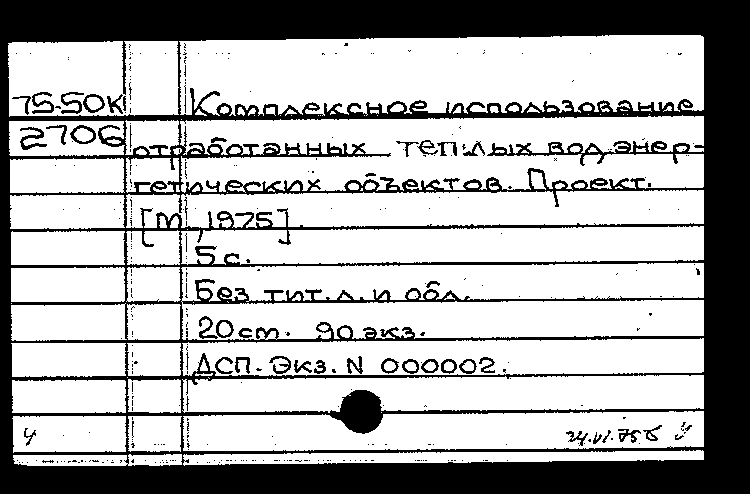 75-50к Комплексное использование
2706 отработанных теплых вод энер-
гетических объектов. Проект.
[М, 1975].
5 с.
Без тит. л. и обл.
20 cm. 90 экз.
ДСП. Экз. N 000002.
24.VI.75